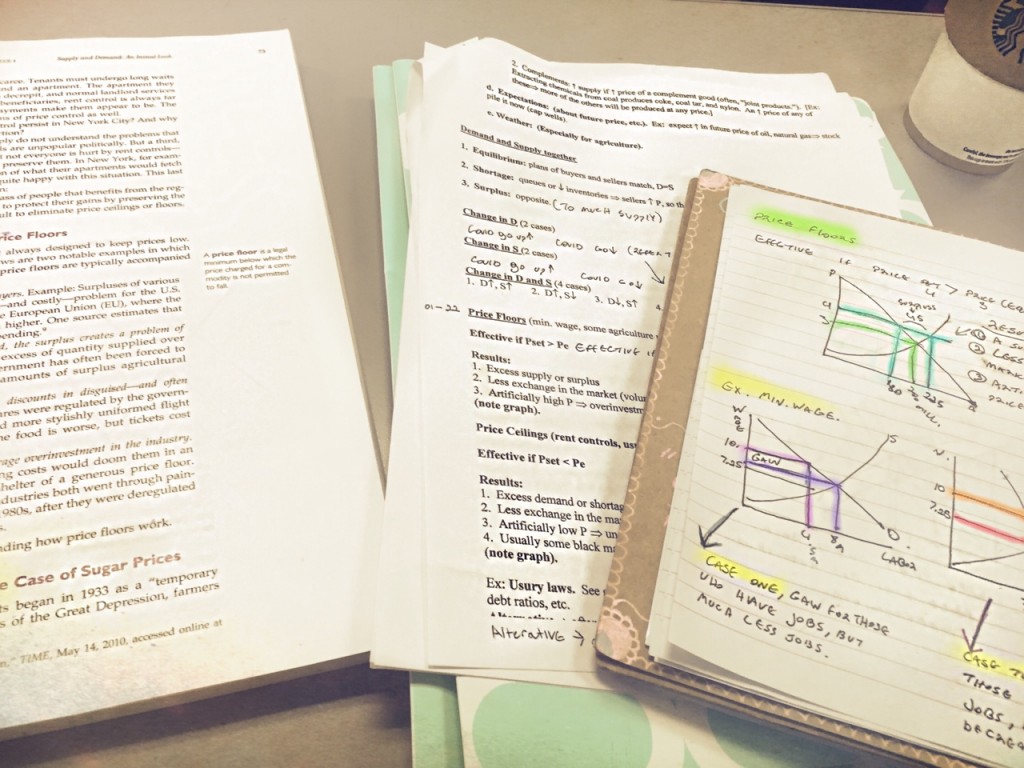 Supply and Demand: An Initial Look 75
carce. Tenants must undergo long waits
nd an apartment. The apartment they
decrepit, and normal landlord services
beneficiaries, rent control is always far
ayments make them appear to be. The
ns of price control as well.
trol persist in New York City? And why
ction?
ply do not understand the problems that
ls are unpopular politically. But a third,
t not everyone is hurt by rent controls—
preserve them. In New York, for exam-
on of what their apartments would fetch
quite happy with this situation. This last
n:
ass of people that benefits from the reg-
to protect their gains by preserving the
ult to eliminate price ceilings or floors.
rice Floors
always designed to keep prices low.
ws are two notable examples in which
price floors are typically accompanied
A price floor is a legal
minimum below which the
price charged for a com-
modity is not permitted
to fall.
yers. Example: Surpluses of various
—and costly—problem for the U.S.
e European Union (EU), where the
higher. One source estimates that
pending."
d, the surplus creates a problem of
excess of quantity supplied over
ernment has often been forced to
amounts of surplus agricultural
discounts in disguised—and often
ares were regulated by the govern-
d more stylishly uniformed flight
he food is worse, but tickets cost
rage overinvestment in the industry.
ng costs would doom them in an
shelter of a generous price floor.
ndustries both went through pain-
1980s, after they were deregulated
s.
nding how price floors work.
e Case of Sugar Prices
ts began in 1933 as a "temporary
s of the Great Depression, farmers
n," TIME, May 14, 2010, accessed online at
2. Complements: ↑ supply if ↑ price of a complement good (often, "joint products."). [Ex:
Extracting chemicals from coal produces coke, coal tar, and nylon. An ↑ price of any of
these⇒ more of the others will be produced at any price.]
d. Expectations: (about future price, etc.). Ex: expect ↑ in future price of oil, natural gas⇒ stock
pile it now (cap wells).
e. Weather: (Especially for agriculture).
Demand and Supply together
1. Equilibrium: plans of buyers and sellers match, D=S
2. Shortage: queues or ↓ inventories ⇒ sellers ↑ P, so th
3. Surplus: opposite. (TO MUCH SUPPLY)
Change in D (2 cases)
COULD GO UP↑ COULD GO↓
Change in S (2 cases)
COULD GO UP↑ COULD GO↓
Change in D and S (4 cases)
1. D↑, S↑ 2. D↑, S↓ 3. D↓, S↑ 4.
01-22 Price Floors (min. wage, some agriculture
Effective if Pset > Pe EFFECTIVE if
Results:
1. Excess supply or surplus
2. Less exchange in the market (volu
3. Artificially high P ⇒ overinvestm
(note graph).
Price Ceilings (rent controls, us
Effective if Pset < Pe
Results:
1. Excess demand or shortag
2. Less exchange in the ma
3. Artificially low P ⇒ un
4. Usually some black ma
(note graph).
Ex: Usury laws. See
debt ratios, etc.
Alterative →
PRICE FLOORS
EFFECTIVE if PRICE SET > PRICE
4 3
P
SURPLUS
4
3
① A SU
② LESS
MARK
③ ARTI
PRICE
Q
EX. MIN. WAGE.
W
10.
7.25
GAW
S
D
LABOR
W.
10
7.25
CASE ONE, GAW FOR THOSE
WHO HAVE JOBS, BUT
MUCH LESS JOBS.
CASE T
THOSE
JOBS,
DECREA